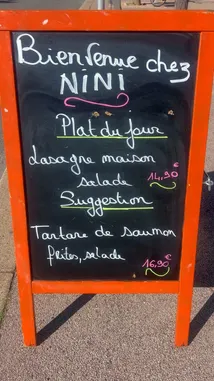 Bienvenue chez
NINI
Plat du jour
Lasagne maison
salade 14,90€
Suggestion
Tartare de saumon
frites, salade
16,90€